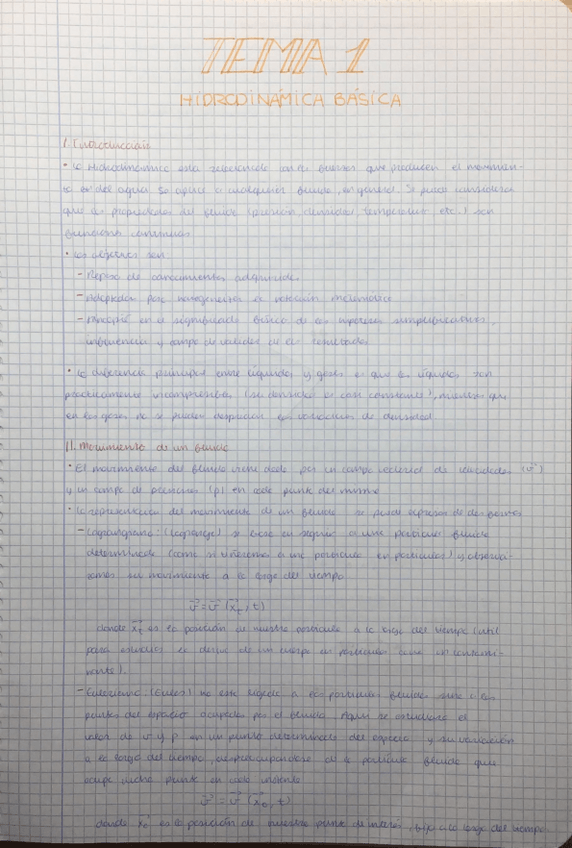 TEMA 1
HIDRODINÁMICA BÁSICA
I. Introducción
• La Hidrodinámica está relacionada con las fuerzas que producen el movimien-
to del agua. Se aplica a cualquier fluido, en general. Se puede considerar
que las propiedades del fluido (presión, densidad, temperatura etc.) son
funciones continuas
• Los objetivos son
- Repaso de conocimientos adquiridos
- Adaptados para homogeneizar la notación matemática
- en el significado físico de las hipótesis simplificativas,
influencia y campo de validez de los resultados
• La diferencia principal entre líquidos y gases es que los líquidos son
prácticamente incompresibles (su densidad es casi constante), mientras que
en los gases no se pueden despreciar las variaciones de densidad
II. Movimiento de un fluido
• El movimiento del fluido viene dado por un campo vectorial de velocidades (v⃗)
y un campo de presiones (p) en cada punto del mismo
• La representación del movimiento de un fluido se puede expresar de dos formas
- Lagrangiana: (Lagrange) se basa en seguir a una partícula fluida
determinada (como si siguiéramos a una partícula en particular) y observa-
remos su movimiento a lo largo del tiempo
v⃗ = v⃗ (x⃗t, t)
donde x⃗t es la posición de nuestra partícula a lo largo del tiempo (útil
para estudiar la deriva de un cuerpo en particular como un contami-
nante).
- Euleriana: (Euler) no está ligada a las partículas fluidas sino a los
puntos del espacio ocupados por el fluido. Aquí se estudiará el
valor de v y p en un punto determinado del espacio y su variación
a lo largo del tiempo, despreocupándose de la partícula fluida que
ocupe dicho punto en cada instante
v⃗ = v⃗ (x⃗o, t)
donde x⃗o es la posición de nuestro punto de interés, fijo a lo largo del tiempo